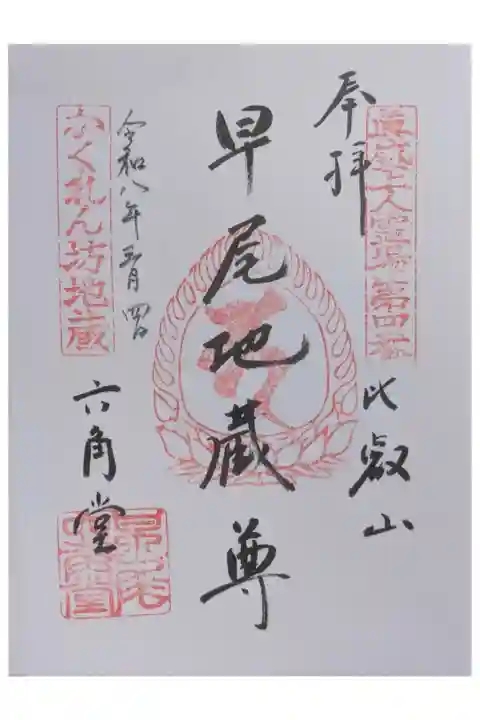 奉拝
真盛上人霊場第四番
比叡山
早尾地蔵尊
令和八年五月四日
かくれん坊地蔵
六角堂